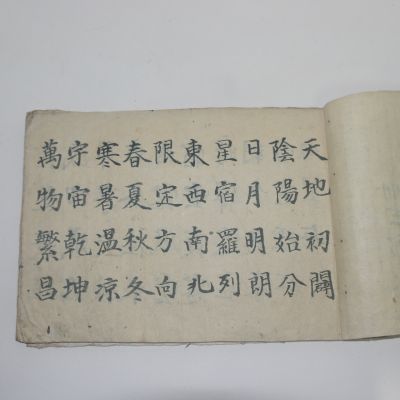 天地初闢
陰陽始分
日月明朗
星宿羅列
東西南北
限定方向
春夏秋冬
寒暑溫凉
宇宙乾坤
萬物繁昌